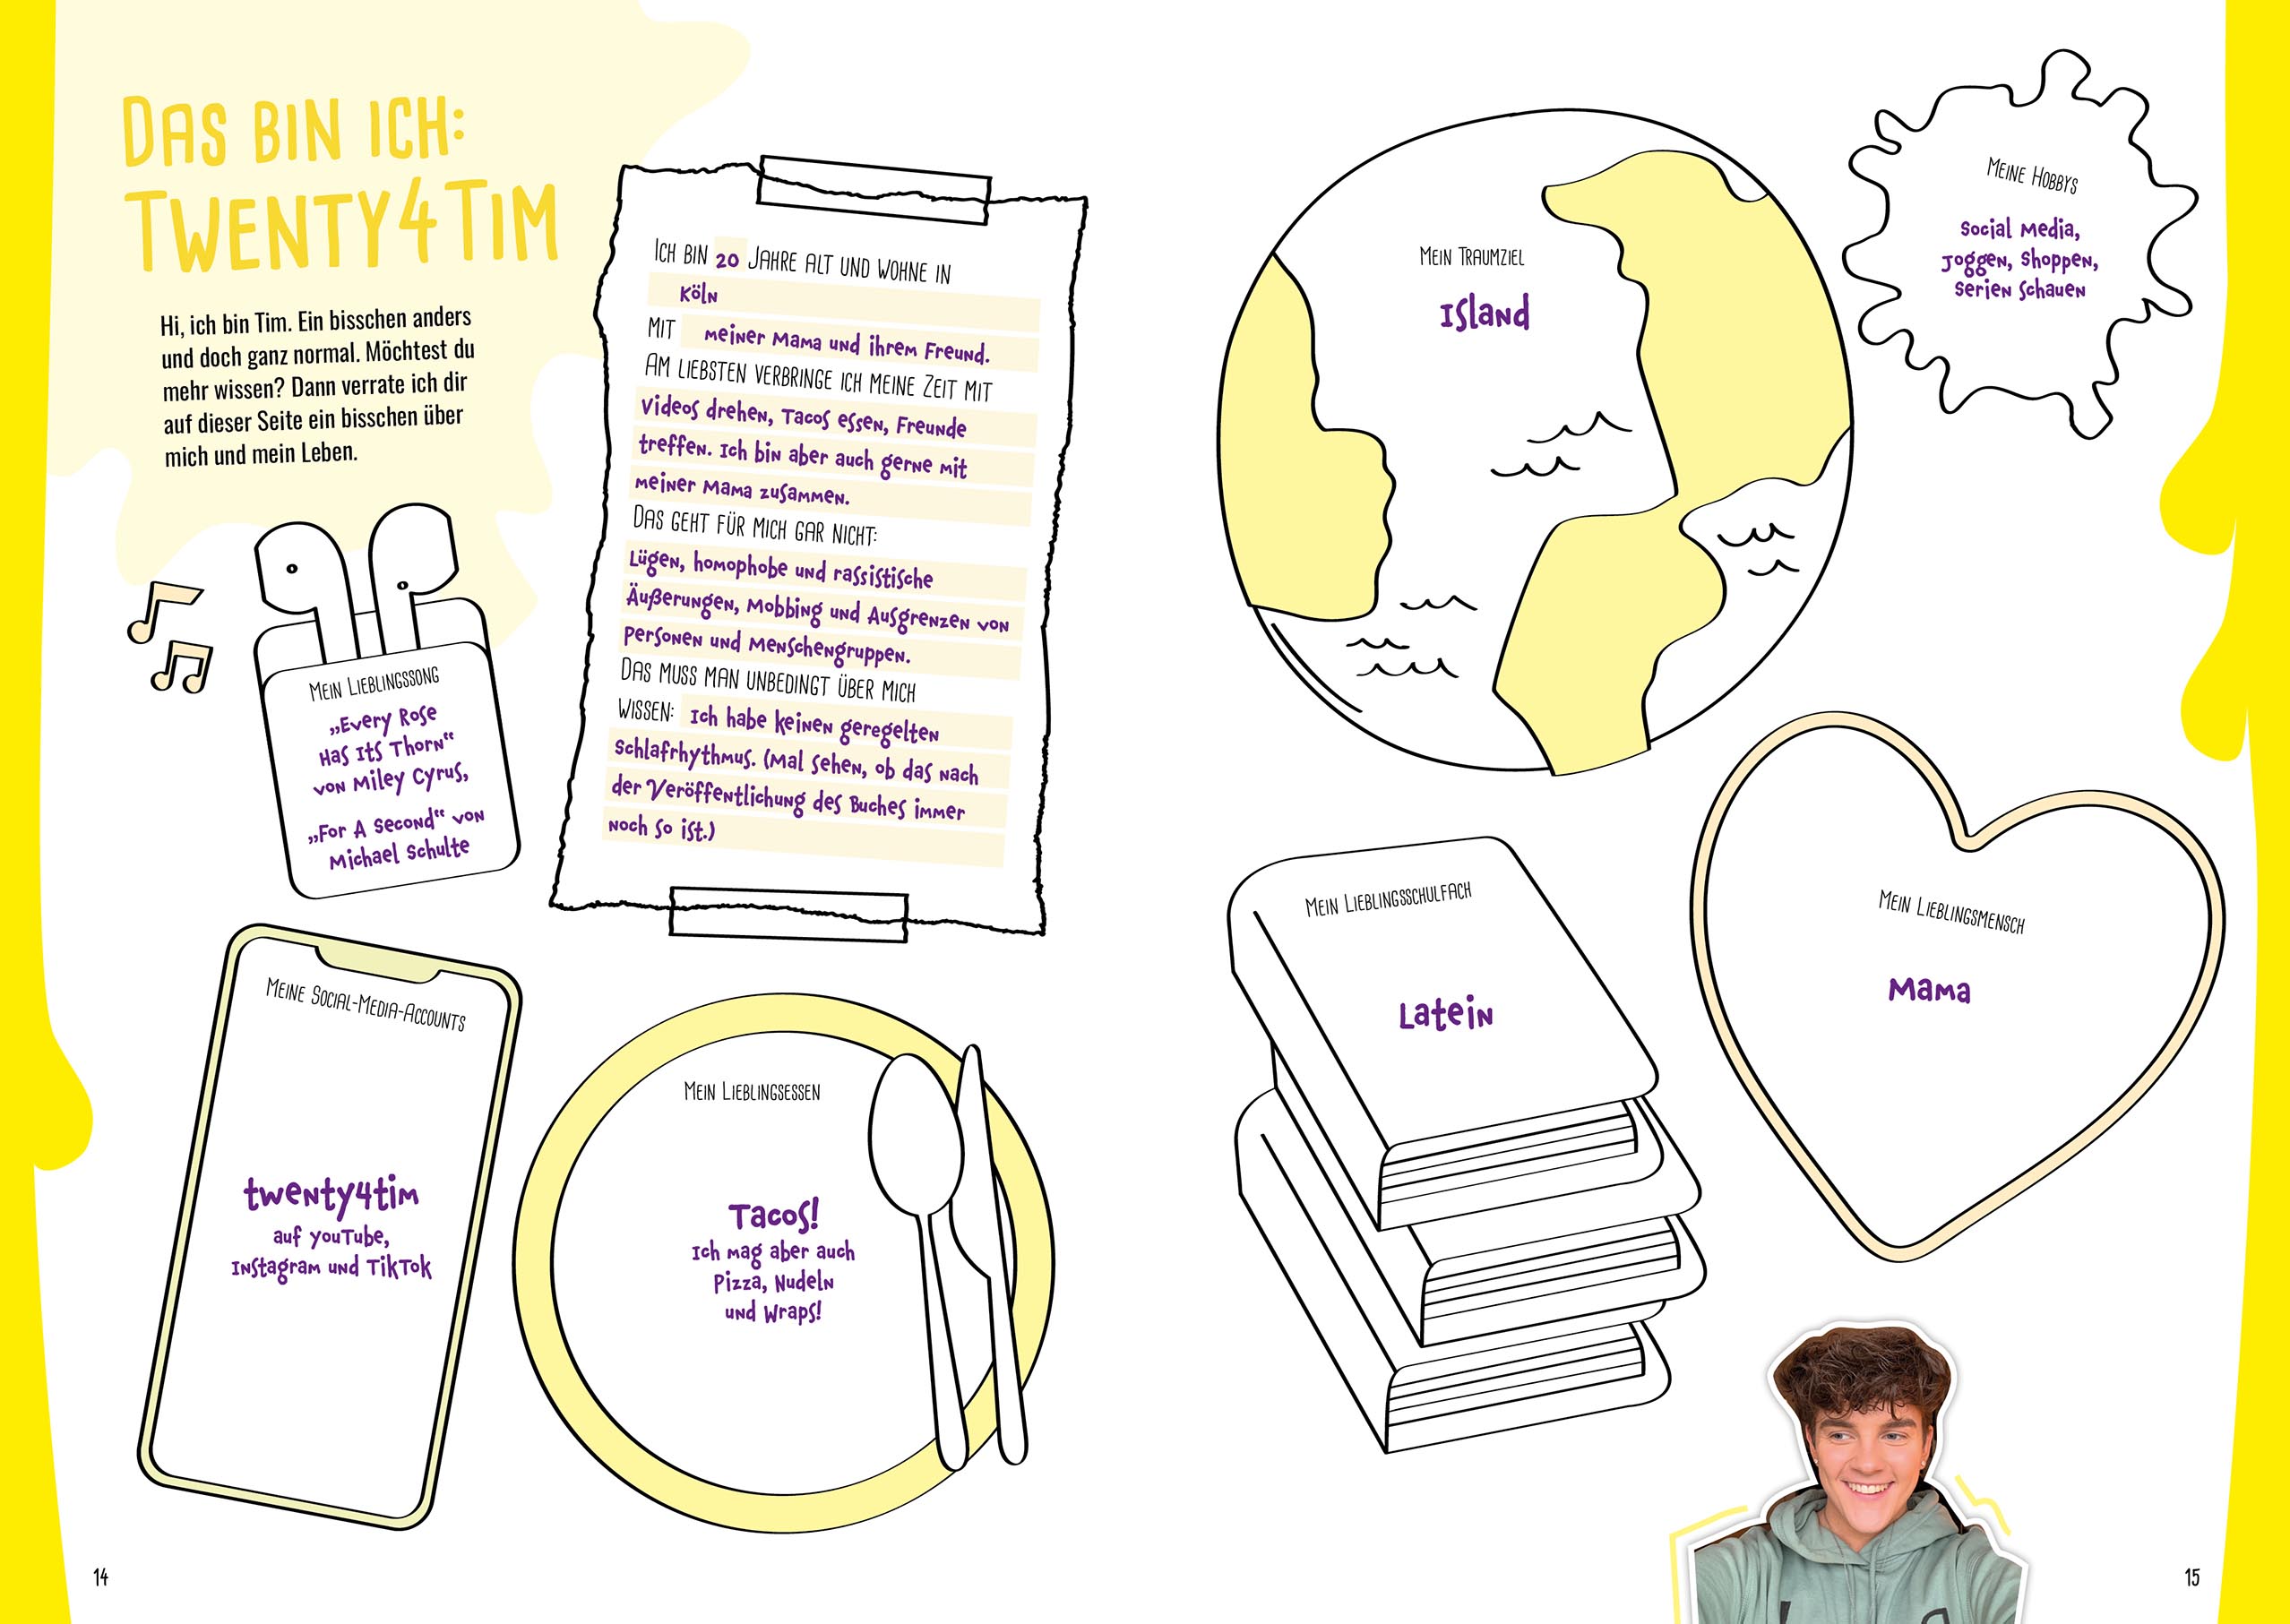 Das bin ich:
Twenty4Tim
Hi, ich bin Tim. Ein bisschen anders
und doch ganz normal. Möchtest du
mehr wissen? Dann verrate ich dir
auf dieser Seite ein bisschen über
mich und mein Leben.
Mein Lieblingssong
„Every Rose
Has Its Thorn“
von Miley Cyrus,
„For A Second“ von
Michael Schulte
Ich bin 20 Jahre alt und wohne in
Köln
mit meiner Mama und ihrem Freund.
Am liebsten verbringe ich meine Zeit mit
Videos drehen, Tacos essen, Freunde
treffen. Ich bin aber auch gerne mit
meiner Mama zusammen.
Das geht für mich gar nicht:
Lügen, homophobe und rassistische
Äußerungen, Mobbing und Ausgrenzen von
Personen und Menschengruppen.
Das muss man unbedingt über mich
wissen: Ich habe keinen geregelten
Schlafrhythmus. (Mal sehen, ob das nach
der Veröffentlichung des Buches immer
noch so ist.)
Meine Social-Media-Accounts
twenty4tim
auf YouTube,
Instagram und TikTok
Mein Lieblingsessen
Tacos!
Ich mag aber auch
Pizza, Nudeln
und Wraps!
14
Mein Traumziel
Island
Meine Hobbys
Social Media,
Joggen, Shoppen,
Serien schauen
Mein Lieblingsschulfach
Latein
Mein Lieblingsmensch
Mama
15